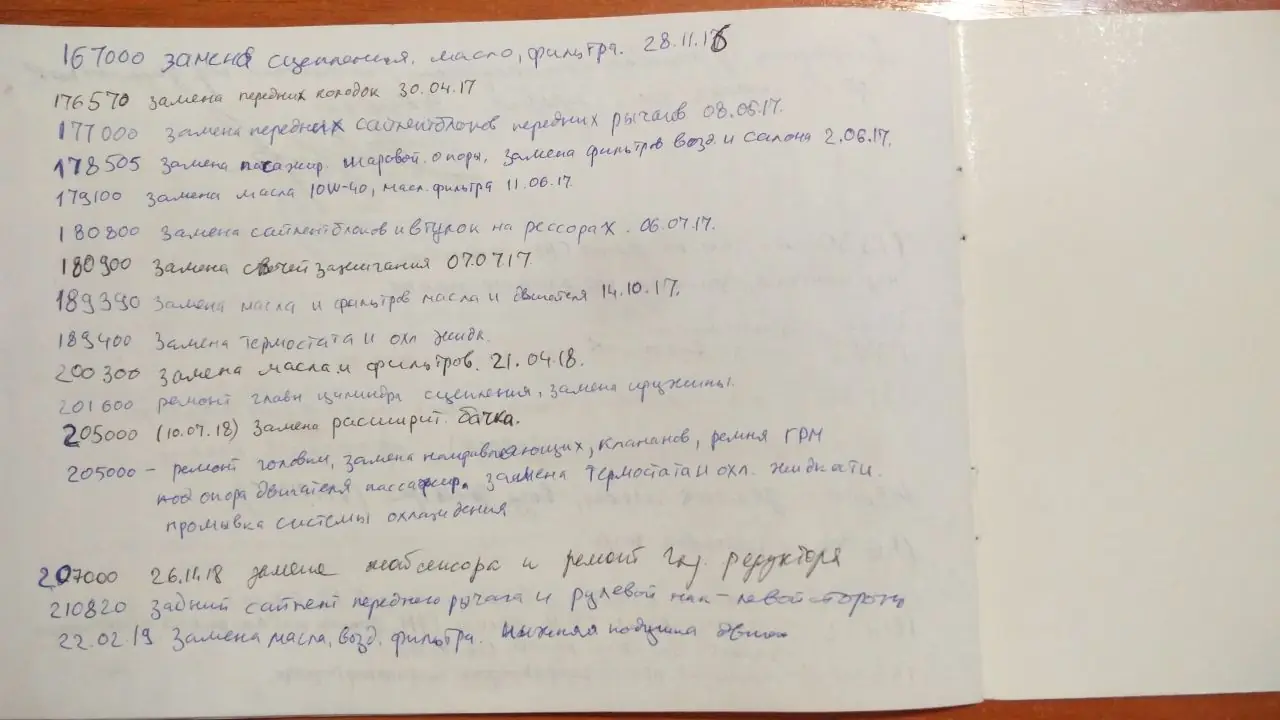 167000 замена сцепления, масло, фильтра. 28.11.16
176570 замена передних колодок 30.04.17
177000 замена передних сайлентблоков передних рычагов 08.05.17.
178505 замена пасажир. шаровой опоры, замена фильтров возд. и салона 2.06.17.
179100 замена масла 10W-40, масл. фильтра 11.06.17
180800 замена сайлентблоков и втулок на рессорах. 06.07.17.
180900 замена свечей зажигания 07.07.17
189390 замена масла и фильтров масла и двигателя 14.10.17.
189400 замена термостата и охл жидк.
200300 замена масла и фильтров. 21.04.18.
201600 ремонт главн цилиндра сцепления, замена пружины.
205000 (10.07.18) замена расширит. бачка.
205000 – ремонт головки, замена направляющих, клапанов, ремня ГРМ
под опора двигателя пассажир. замена термостата и охл. жидкати.
промывка системы охлаждения
207000 26.11.18 замена и ремонт газ. редуктора
210820 задний сайлент переднего рычага и рулевой нак – левой стороны
22.02 19 замена масла, возд. фильтра. нижняя подушка двига